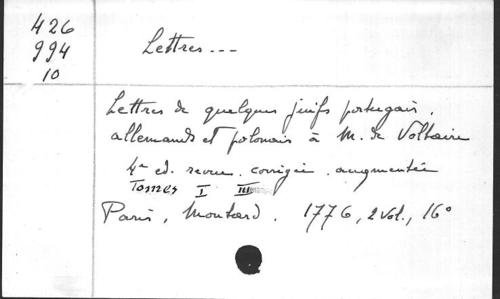 426
994
10
Lettres...
Lettres de quelques juifs portugais,
allemands et polonais à M. de Voltaire
4e ed. revue. corrigée. augmentée
Tomes I III
Paris, Moutard. 1776, 2 vol., 16°